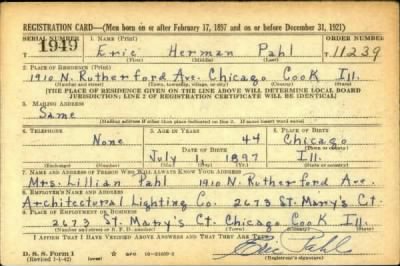 REGISTRATION CARD—(Men born on or after February 17, 1897 and on or before December 31, 1921)
SERIAL NUMBER 1. NAME (Print) ORDER NUMBER
1949 Eric Herman Pahl 11239
(First) (Middle) (Last)
2. PLACE OF RESIDENCE (Print)
1910 N. Rutherford Ave. Chicago Cook Ill.
(Number and street) (Town, township, village, or city) (County) (State)
[THE PLACE OF RESIDENCE GIVEN ON THE LINE ABOVE WILL DETERMINE LOCAL BOARD
JURISDICTION; LINE 2 OF REGISTRATION CERTIFICATE WILL BE IDENTICAL]
3. MAILING ADDRESS
Same
[Mailing address if other than place indicated on line 2. If same insert word same]
4. TELEPHONE 5. AGE IN YEARS 6. PLACE OF BIRTH
None 44 Chicago
DATE OF BIRTH (Town or county)
July 1 1897 Ill.
(Exchange) (Number) (Mo.) (Day) (Yr.) (State or country)
7. NAME AND ADDRESS OF PERSON WHO WILL ALWAYS KNOW YOUR ADDRESS
Mrs. Lillian Pahl 1910 N. Rutherford Ave.
8. EMPLOYER'S NAME AND ADDRESS
Architectural Lighting Co. 2673 St. Mary's Ct.
9. PLACE OF EMPLOYMENT OR BUSINESS
2673 St. Mary's Ct. Chicago Cook Ill.
(Number and street or R. F. D. number) (Town) (County) (State)
I AFFIRM THAT I HAVE VERIFIED ABOVE ANSWERS AND THAT THEY ARE TRUE.
D. S. S. Form 1 GPO Eric Pahl
(Revised 1-1-42) (Registrant's signature)